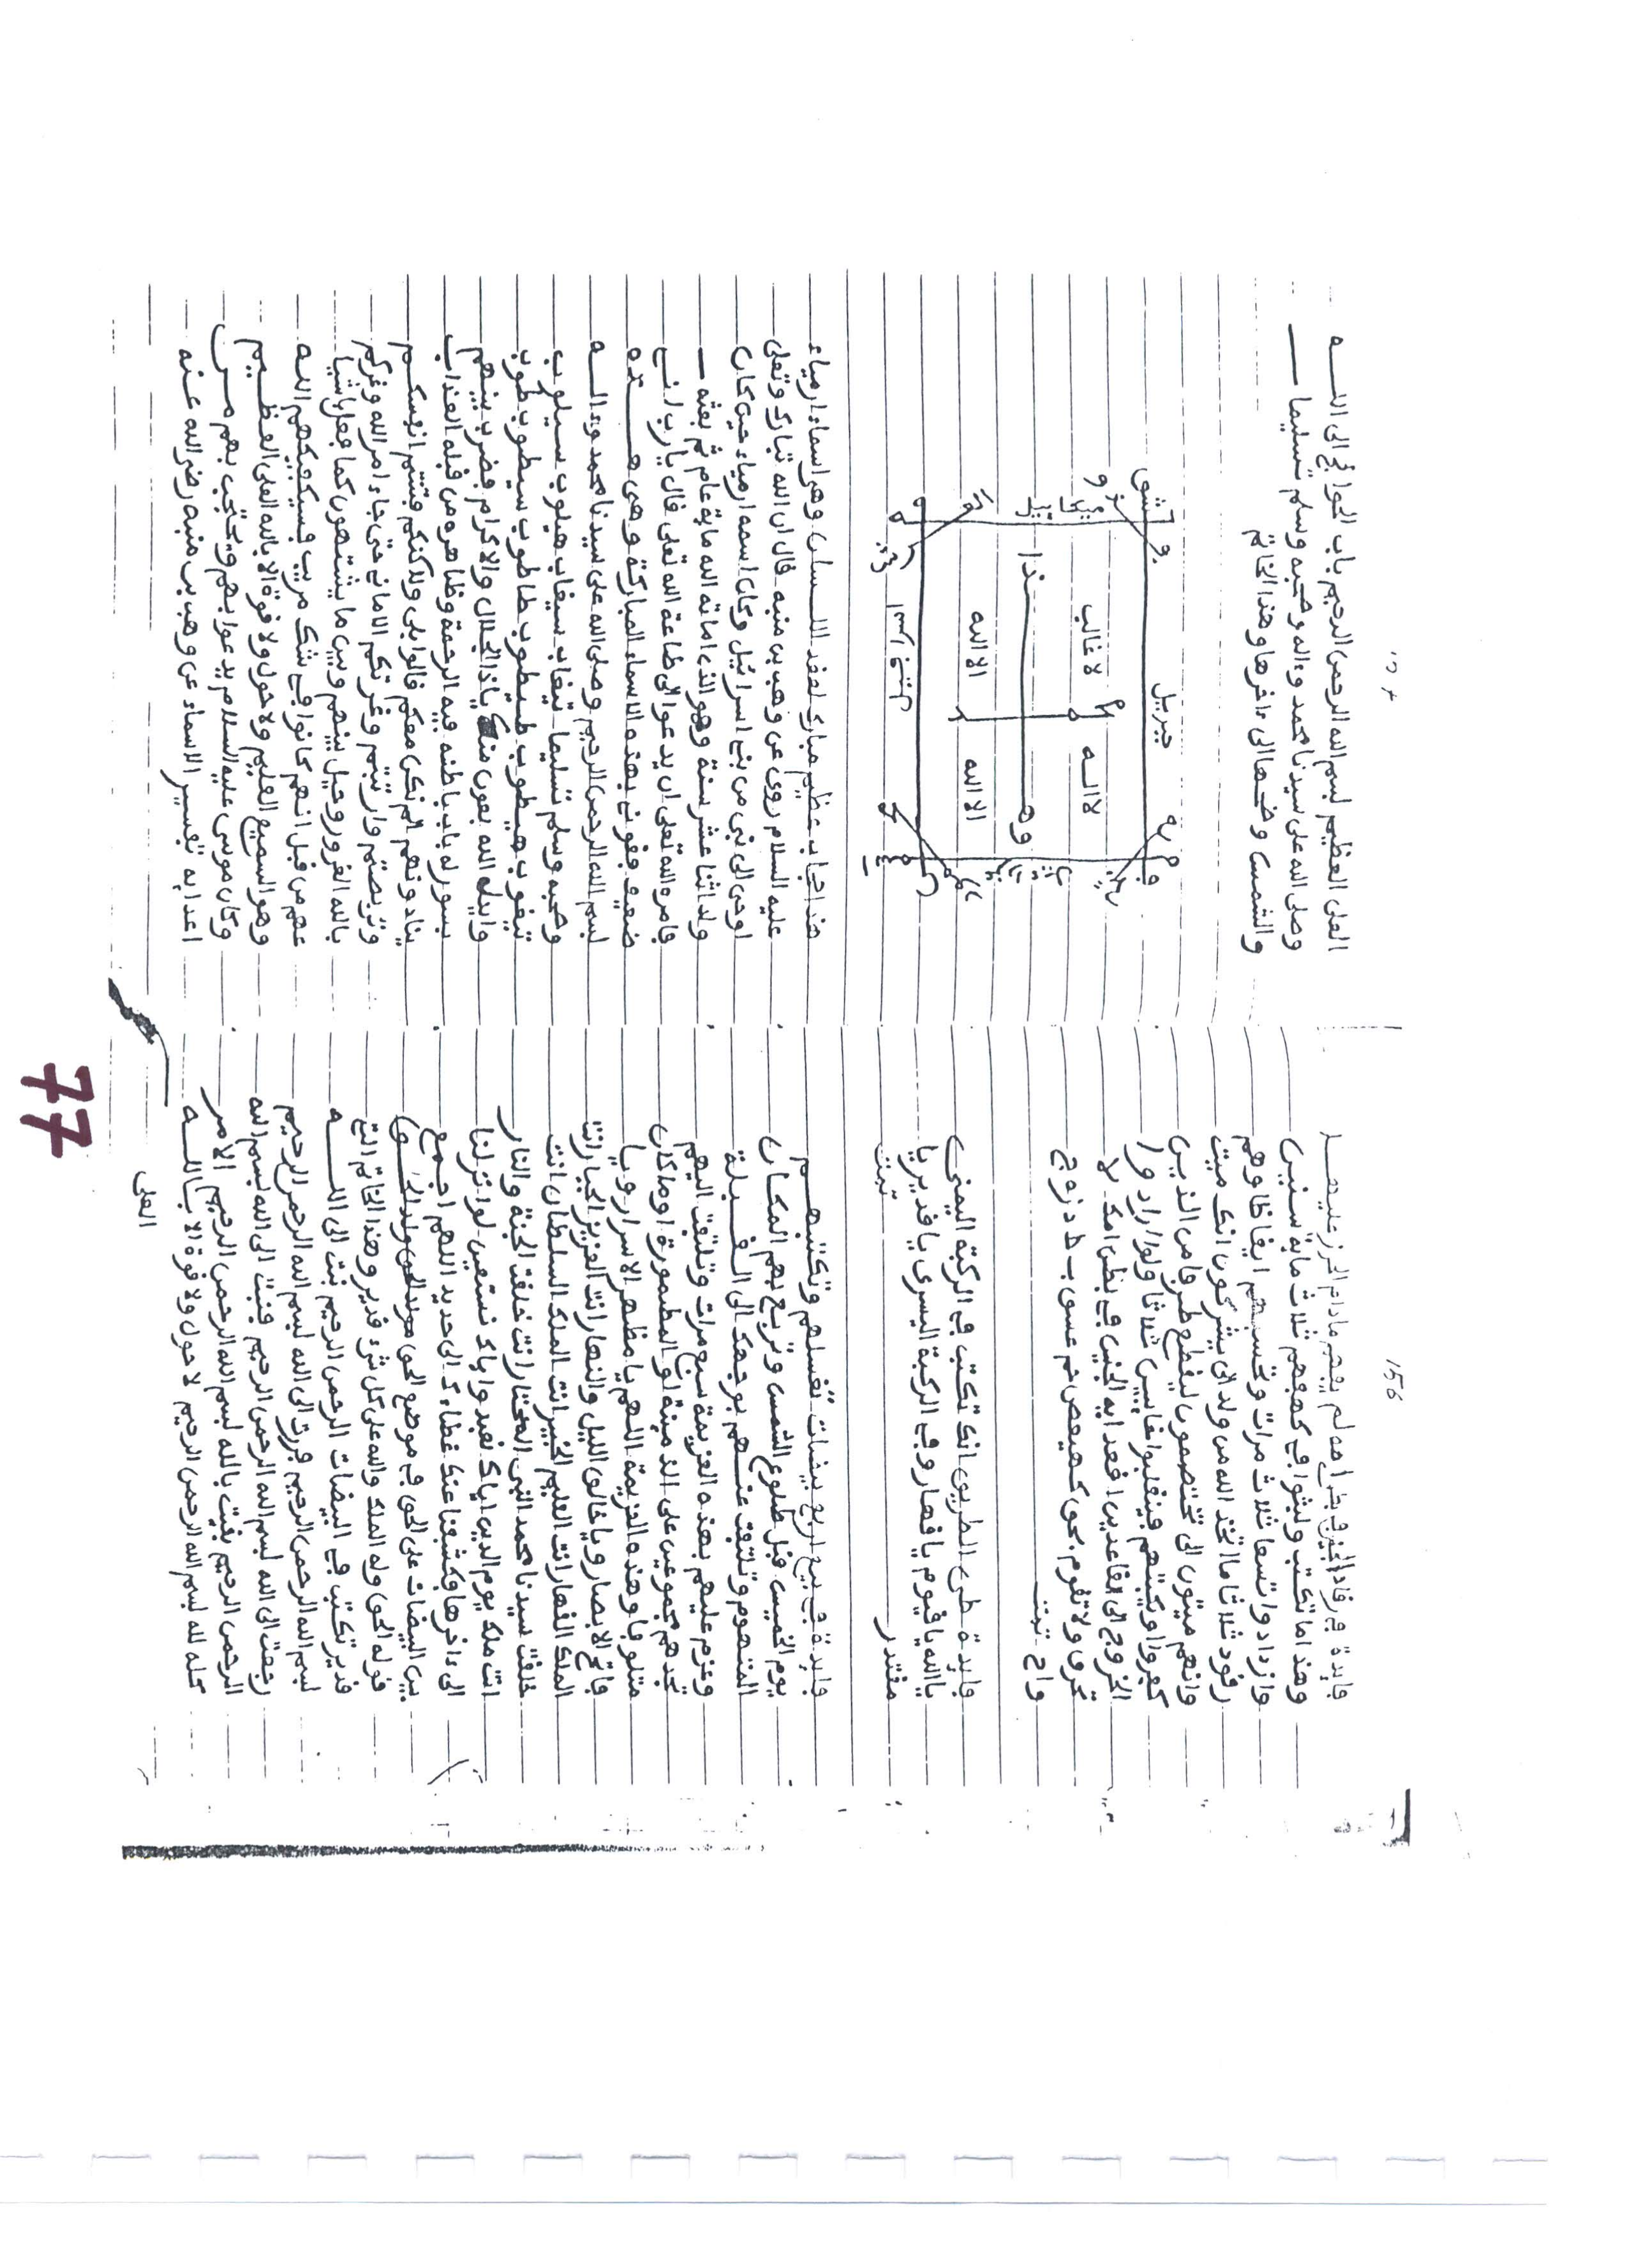 156
فايدة في رقاد الجنين في بطن امه لم يبهم مادام الحرز عليها
وهذا ما تكتب ولبثوا في كهفهم ثلاث ماية سنين
وازدادوا تسعا ثلاث مرات وتحسبهم ايقاظا وهم
رقود ثلاثا ما اتخذ الله من ولد الى يشركون انك ميت
وانهم ميتون الى تختصمون ليقطع طرفا من الذين
كفروا او يكبتهم فينقلبوا خايبين ثلاثا ولو ارادوا
الخروج الى القاعدين اقعد ايه الجنين في بطن امك لا
تحرق ولا تقوم بحق كهيعص حم عسق ب ط د ز ه ج
واح تمت
فايدة طى الطريق انك تكتب في الركبة اليمنى
يا الله يا قيوم يا قهار وفي الركبة اليسرى يا قدير يا
مقتدر تمت
فايدة في بيع اربع بيضات تغسلهم وتكتبهم
يوم الخميس قبل طلوع الشمس وتربع بهم المكان
المتهوم وتلتفت عنهم بوجهك الى القبلة
وعزم عليهم بهذه العزيمة سبع مرات وتلتفت اليهم
تجدهم مجموعين على الدفينة او المطمورة او ما كان
متلوفا وهذه العزيمة اللهم يا مظهر الاسرار ويا
فاتح الابصار ويا خالق الليل والنهار انت العزيز الجبار انت
الملك القهار انت العليم الخبير انت الملك السلطان انت
خلقت سيدنا محمد النبى المختار انت خلقت الجنة والنار
انت ملك يوم الدين اياك نعبد واياك نستعين لو انزلنا
الى ءاخرها فكشفنا عنك غطاءك الى حديد اللهم اجمع
بين البيضات على الحق في موضع الحق
قوله الحق وله الملك والله على كل شىء قدير وهذا الخاتم الذى
قدير تكتب في البيضات الرحمن الرحيم تبت الى الله
بسم الله الرحمن الرحيم فررت الى الله بسم الله الرحمن الرحيم
رجعت الى الله بسم الله الرحمن الرحيم فنبت الى الله بسم الله
الرحمن الرحيم بقيت بالله بسم الله الرحمن الرحيم الامر
كله لله بسم الله الرحمن الرحيم لا حول ولا قوة الا بالله
العلى
العلى العظيم بسم الله الرحمن الرحيم باب الحوايج الى الله
وصلى الله على سيدنا محمد وءاله وصحبه وسلم تسليما
والشمس وضحاها الى ءاخرها وهذا الخاتم
جبريل
لا اله
لا غالب
وهـــذا
الا الله
الا الله
هذا حجاب عظيم مبارك لعقد اللسان وهو اسماء ارمياء
عليه السلام روى عن وهب بن منبه قال ان الله تبارك وتعلى
اوحى الى نبى من بنى اسرائيل وكان اسمه ارمياء حين كان
ولد اثنا عشر سنة وهو الذى اماته الله ماية عام ثم بعثه
فامره الله تعلى ان يدعوا الى طاعة الله تعلى قال يا رب انى
ضعيف فقونى بهذه الاسماء المباركة وهى هذه
بسم الله الرحمن الرحيم وصلى الله على سيدنا محمد وءاله
وصحبه وسلم تسليما
يا ذا الجلال والاكرام فضرب بينهم
بسور له باب باطنه فيه الرحمة وظاهره من قبله العذاب
ينادونهم الم نكن معكم قالوا بلى ولاكنكم فتنتم انفسكم
وتربصتم وارتبتم وغرتكم الامانى حتى جاء امر الله وغركم
بالله الغرور وحيل بينهم وبين ما يشتهون كما فعل باشيا
عهم من قبل انهم كانوا في شك مريب فسيكفيكهم الله
وهو السميع العليم ولا حول ولا قوة الا بالله العلى العظيم
وكان موسى عليه السلام يدعوا بهم ويحتجب بهم من
اعدايه تفسير الاسماء عن وهب بن منبه رضى الله عنه
77